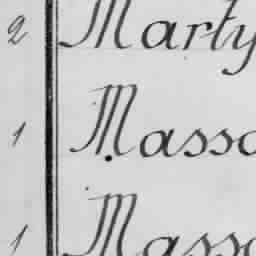 2 Marty
1 Masso
1 Masso